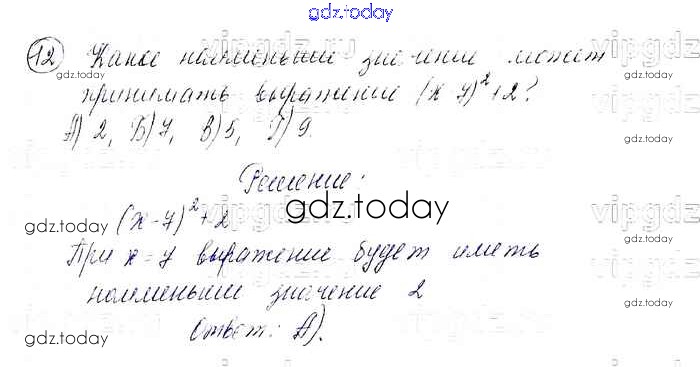 gdz.today
12 Какое наименьшее значение может
gdz.today
принимать выражение (x-7)²+2?
А) 2, Б) 7, В) 5, Г) 9.
gdz.today
Решение:
(x-7)²+2
gdz.today
gdz.today
gdz.today
При x=7 выражение будет иметь
наименьшее значение 2
gdz.today
Ответ: А).
gdz.today
gdz.today